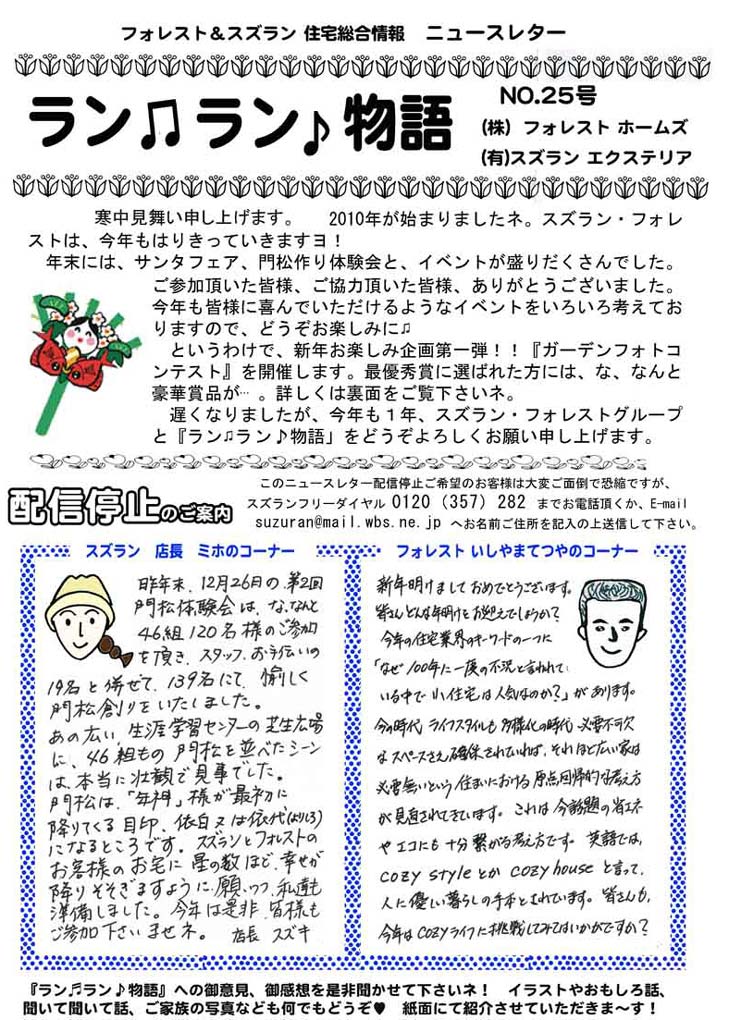 フォレスト＆スズラン 住宅総合情報　ニュースレター
ラン♫ラン♪物語
NO.25号
(株) フォレスト ホームズ
(有)スズラン エクステリア
寒中見舞い申し上げます。　2010年が始まりましたネ。スズラン・フォレ
ストは、今年もはりきっていきますヨ！
年末には、サンタフェア、門松作り体験会と、イベントが盛りだくさんでした。
ご参加頂いた皆様、ご協力頂いた皆様、ありがとうございました。
今年も皆様に喜んでいただけるようなイベントをいろいろ考えてお
りますので、どうぞお楽しみに♫
というわけで、新年お楽しみ企画第一弾！！『ガーデンフォトコ
ンテスト』を開催します。最優秀賞に選ばれた方には、な、なんと
豪華賞品が…。詳しくは裏面をご覧下さいネ。
遅くなりましたが、今年も１年、スズラン・フォレストグループ
と『ラン♫ラン♪物語」をどうぞよろしくお願い申し上げます。
配信停止のご案内
このニュースレター配信停止ご希望のお客様は大変ご面倒で恐縮ですが、
スズランフリーダイヤル 0120 (357) 282 までお電話頂くか、E-mail
suzuran@mail.wbs.ne.jp へお名前ご住所を記入の上送信して下さい。
スズラン　店長　ミホのコーナー
昨年末、12月26日の第2回
門松体験会は、な、なんと
46組120名様のご参加
を頂き、スタッフ、お手伝いの
19名と併せて、139名にて、愉しく
門松創りをいたしました。
あの広い生涯学習センターの芝生広場
に、46組もの門松を並べたシーン
は、本当に壮観で見事でした。
門松は、「年神」様が最初に
降りてくる目印、依白又は依代(よりしろ)
になるところです。スズランとフォレストの
お客様のお宅に星の数ほど、幸せが
降りそそぎますように、願いつつ、私達も
準備しました。今年は是非、皆様も
ご参加下さいませネ。　店長　スズキ
フォレスト いしやまてつやのコーナー
新年明けましておめでとうございます。
皆さんどんな年明けをお迎えでしょうか？
今年の住宅業界のキーワードの一つに
「なぜ100年に一度の不況と言われて
いる中で小住宅は人気なのか？」があります。
今の時代ライフスタイルも多様化の時代 必要不可欠
なスペースさえ確保されていれば、それほど広い家は
必要無いという住まいにおける原点回帰的な考え方
が見直されてきています。これは今話題の省エネ
やエコにも十分繋がる考え方です。英語では、
cozy styleとか cozy houseと言って、
人に優しい暮らしの手本とされています。皆さんも、
今年はcozyライフに挑戦してみてはいかがですか？
『ラン♫ラン♪物語』への御意見、御感想を是非聞かせて下さいネ！　イラストやおもしろ話、
聞いて聞いて話、ご家族の写真なども何でもどうぞ♥　紙面にて紹介させていただきま～す！